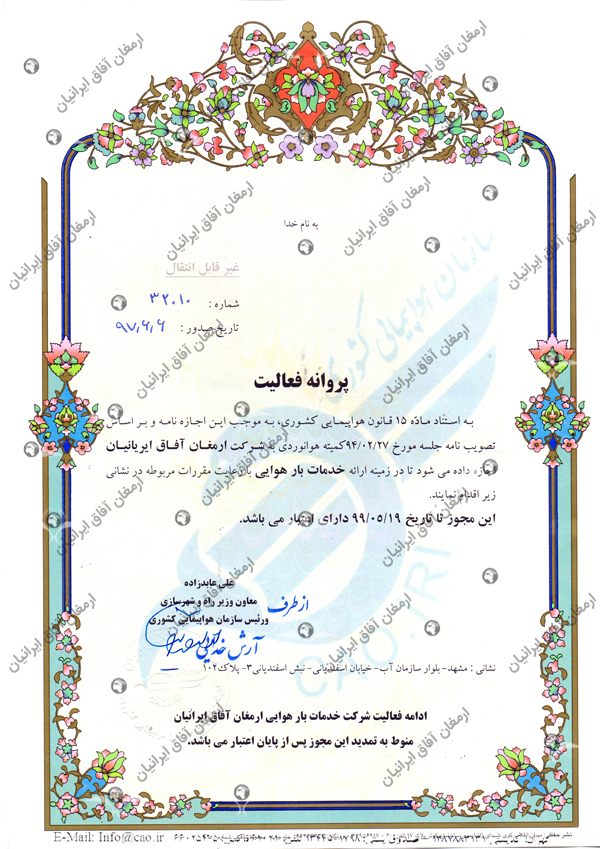 به نام خدا
غیر قابل انتقال
شماره : ۳۲۰۱۰
تاریخ صدور : ۹۷٫۶٫۶
سازمان هواپیمائی کشوری
پروانه فعالیت
به استناد مادّه ۱۵ قانون هواپیمایی کشوری، به موجب این اجازه نامه و بر اساس
تصویب نامه جلسه مورخ ۹۴/۰۲/۲۷کمیته هوانوردی به شرکت ارمغان آفاق ایریانیان
اجازه داده می شود تا در زمینه ارائه خدمات بار هوایی با رعایت مقررات مربوطه در نشانی
زیر اقدام نمایند.
این مجوز تا تاریخ ۹۹/۰۵/۱۹ دارای اعتبار می باشد.
علی عابدزاده
معاون وزیر راه و شهرسازی
و رئیس سازمان هواپیمایی کشوری
از طرف
آرش خدایی
CAO.IRI
نشانی : مشهد- بلوار سازمان آب- خیابان اسفندیانی- نبش اسفندیانی۳- پلاک ۱۰۲
ادامه فعالیت شرکت خدمات بار هوایی ارمغان آفاق ایرانیان
منوط به تمدید این مجوز پس از پایان اعتبار می باشد.
E-Mail: Info@cao.ir
ارمغان آفاق ایرانیان